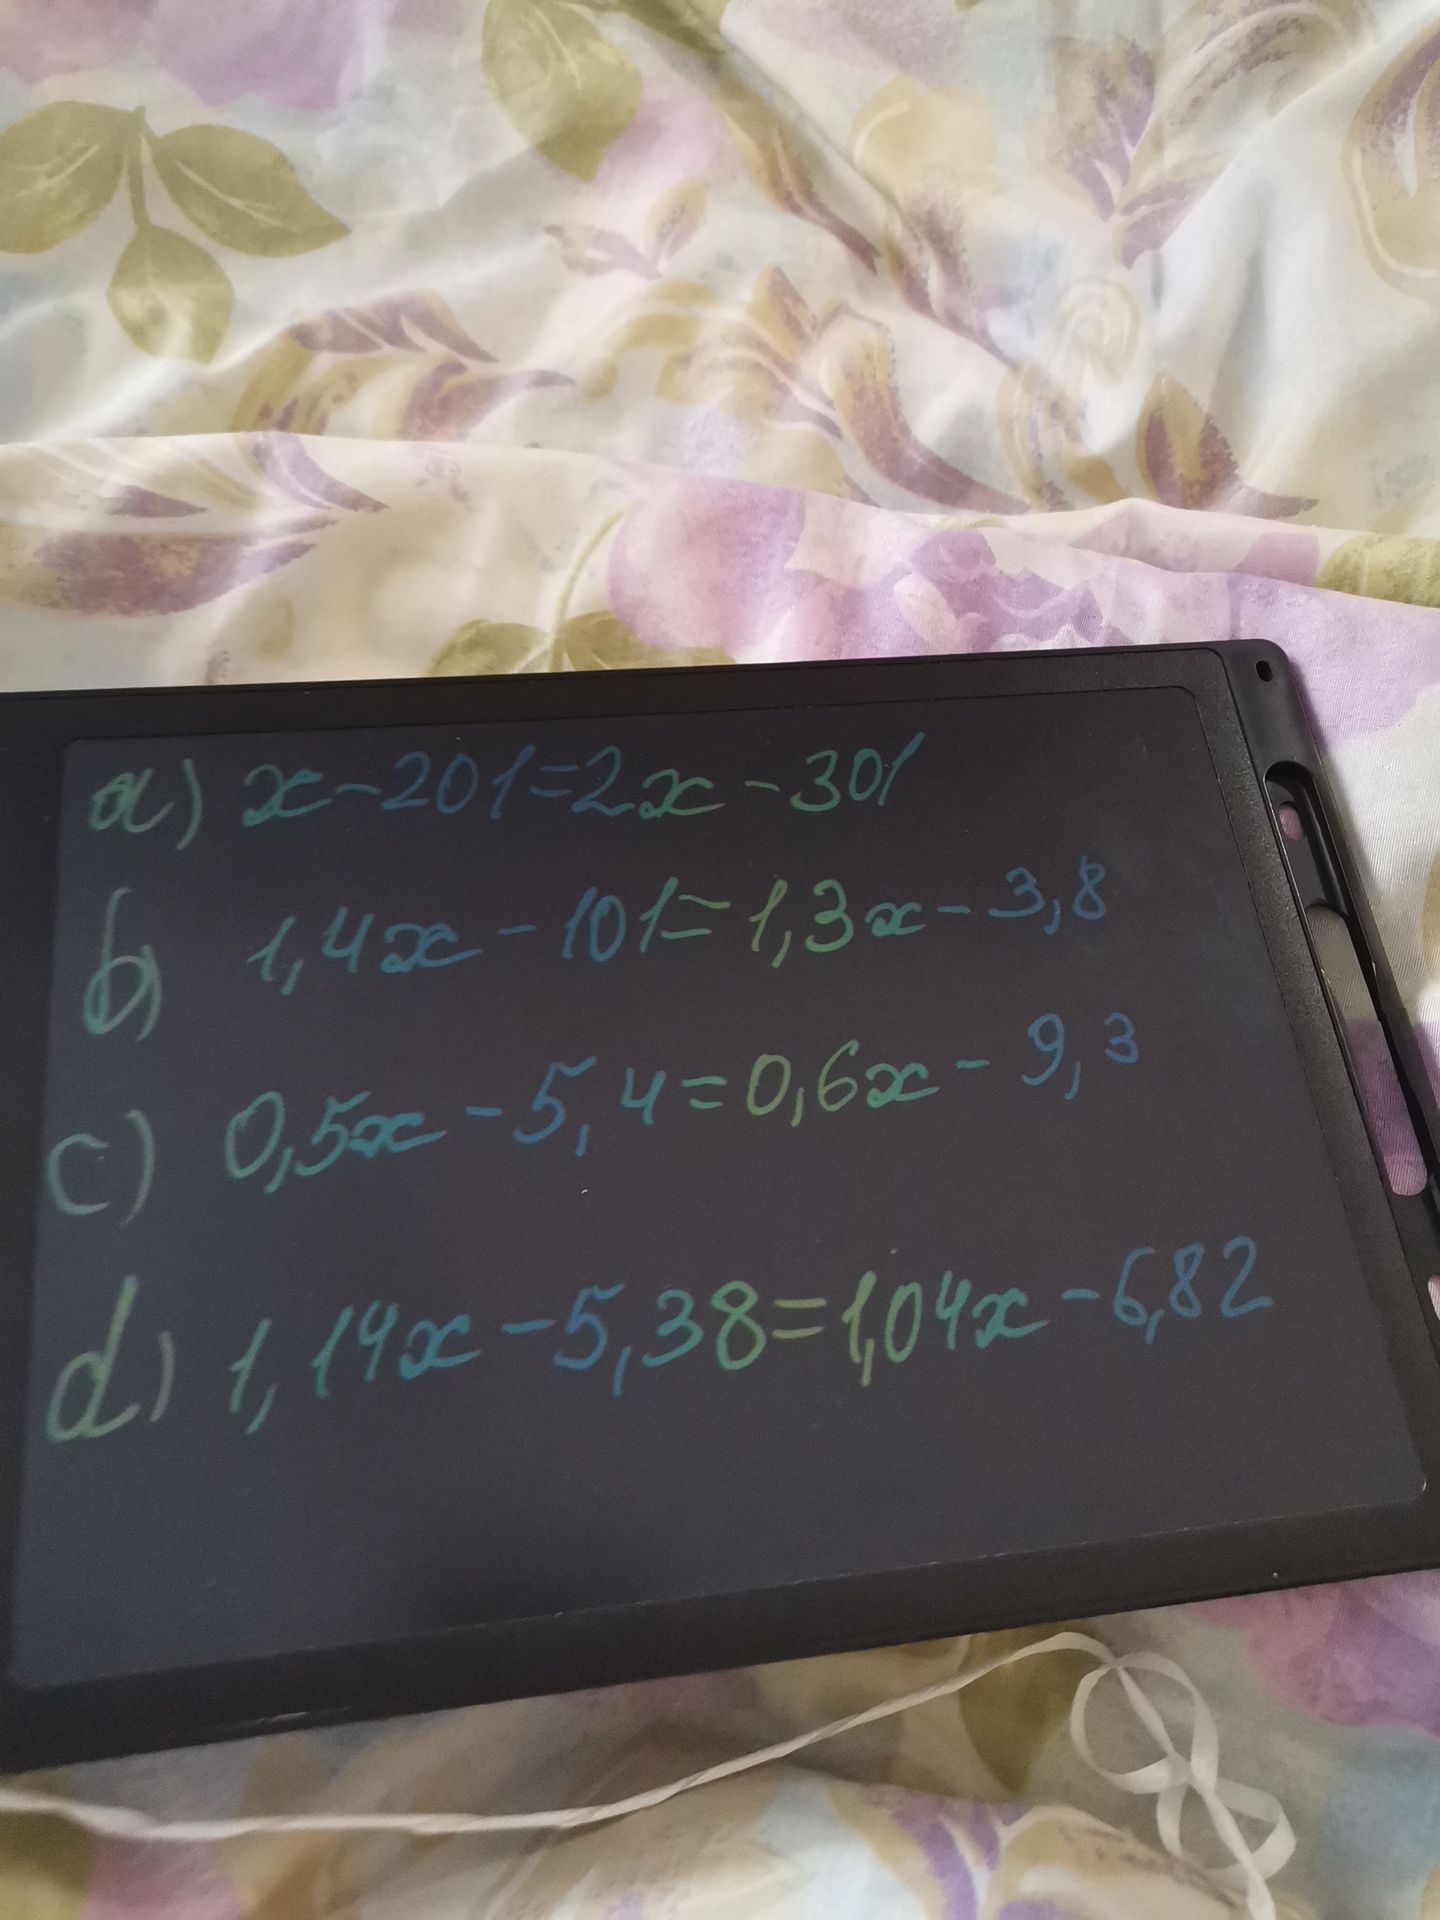 a) x-201=2x-301
b) 1,4x-101=1,3x-3,8
c) 0,5x-5,4=0,6x-9,3
d) 1,14x-5,38=1,04x-6,82